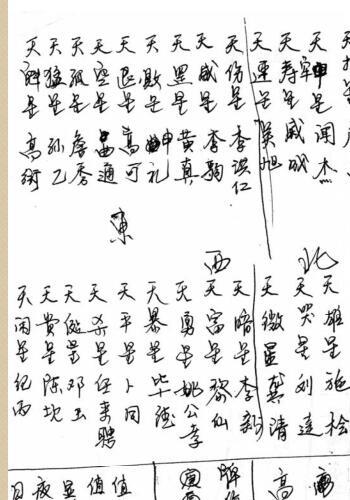 天牢星闻杰
天寿星戚成
天速星吴旭
天伤星李洪仁
天威星李豹
天星黄真
天败星申礼
天退星高可
天空星通
天孤星詹秀
天猛星孙乙
天魁星高衍
北
西
東
天雄星施桧
天哭星刘达
天微星龚清
天暗星李新
天富星黎仙
天勇星姚公孝
天暴星毕德
天平星卜同
天杀星任来聘
天健星邓玉
天贵星陈坎
天闲星纪丙
高
值
值
夜
日